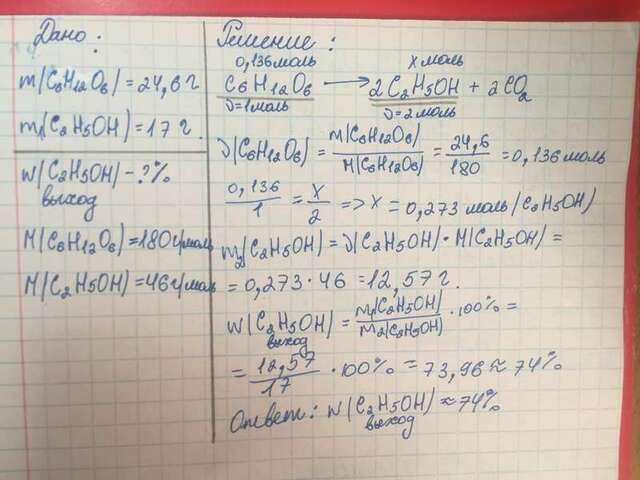 Дано:
m(C6H12O6)=24,6 г
m1(C2H5OH)=17 г.
W(C2H5OH)-?%
выход
M(C6H12O6)=180 г/моль
M(C2H5OH)=46 г/моль
Решение:
0,136моль x моль
C6H12O6 → 2C2H5OH + 2CO2
ν=1моль ν=2моль
ν(C6H12O6) = m(C6H12O6)/M(C6H12O6) = 24,6/180 = 0,136моль
0,136/1 = x/2 => x = 0,273 моль(C2H5OH)
m2(C2H5OH)=ν(C2H5OH)·M(C2H5OH)=
=0,273·46=12,57г.
W(C2H5OH) = m1(C2H5OH)/m2(C2H5OH) ·100%=
выход
= 12,57/17 ·100% = 73,96≈74%
Ответ: W(C2H5OH)≈74%
выход